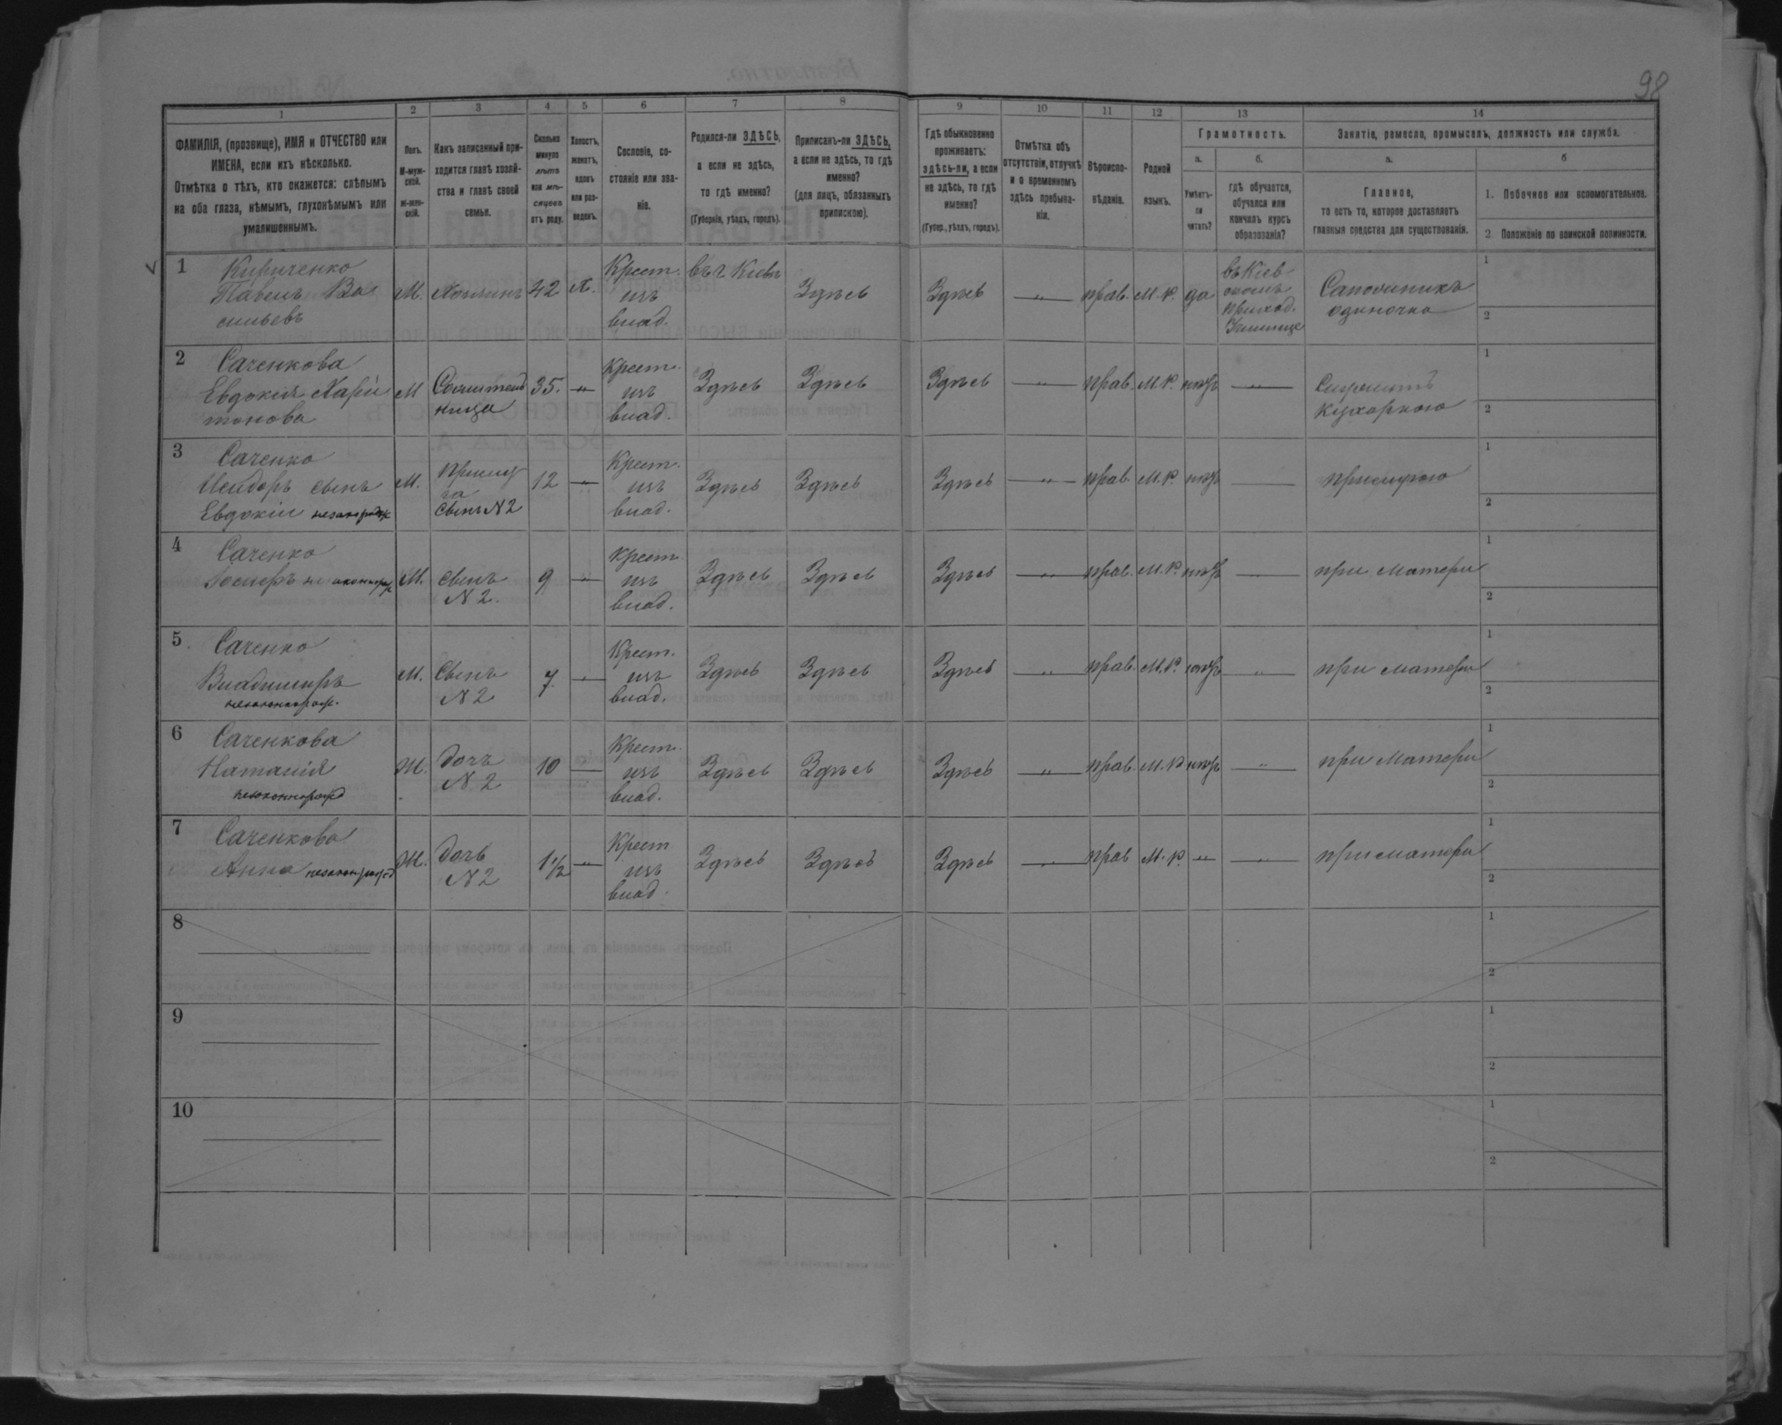 98
1
2
3
4
5
6
7
8
9
10
11
12
13
14
ФАМИЛІЯ, (прозвище), ИМЯ и ОТЧЕСТВО или
ИМЕНА, если ихъ нѣсколько.
Отмѣтка о тѣхъ, кто окажется: слѣпымъ
на оба глаза, нѣмымъ, глухонѣмымъ или
умалишеннымъ.
Полъ.
М-муж-
ской.
Ж-жен-
скій.
Какъ записанный при-
ходится главѣ хозяй-
ства и главѣ своей
семьи.
Сколько
минуло
лѣтъ
или мѣ-
сяцевъ
отъ роду.
Холостъ,
женатъ,
вдовъ
или раз-
веденъ.
Сословіе, со-
стояніе или зва-
ніе.
Родился-ли ЗДѢСЬ,
а если не здѣсь,
то гдѣ именно?
(Губернія, уѣздъ, городъ).
Приписанъ-ли ЗДѢСЬ,
а если не здѣсь, то гдѣ
именно?
(для лицъ, обязанныхъ
припискою).
Гдѣ обыкновенно
проживаетъ:
здѣсь-ли, а если
не здѣсь, то гдѣ
именно?
(Губер., уѣздъ, городъ).
Отмѣтка объ
отсутствіи, отлучкѣ
и о временномъ
здѣсь пребыва-
ніи.
Вѣроиспо-
вѣданіе.
Родной
языкъ.
Грамотность.
а.
Умѣетъ-
ли
читать?
б.
гдѣ обучается,
обучался или
кончилъ курсъ
образованія?
Занятіе, ремесло, промыселъ, должность или служба.
а.
Главное,
то есть то, которое доставляетъ
главныя средства для существованія.
б
1. Побочное или вспомогательное.
2. Положеніе по воинской повинности.
1 Кириченко
Павелъ Ва
сильевъ
М. Хозяинъ 42 Х. Крест. изъ влад. въ г Кіевѣ Здѣсь Здѣсь — " — прав. М.Р. да въ Кіев- приход. Училище Сапожникъ одиночка 1 2
2 Саченкова
Евдокія Хари
тонова
35. — " — Крест. изъ влад. Здѣсь Здѣсь Здѣсь — " — прав. М.Р. — " — Служитъ кухаркою 1 2
3 Саченко
сынъ
Евдокіи
М. сынъ N2 12 — " — Крест. изъ влад. Здѣсь Здѣсь Здѣсь — " — прав. М.Р. — 1 2
4 Саченко
М. сынъ N 2. 9 — " — Крест. изъ влад. Здѣсь Здѣсь Здѣсь — " — прав. М.Р. — " — при матери 1 2
5. Саченко
Владиміръ
М. сынъ N 2 7. — " — Крест. изъ влад. Здѣсь Здѣсь Здѣсь — " — прав. М.Р. — " — при матери 1 2
6 Саченкова
Наталія
Ж. дочь N 2 10 — Крест. изъ влад. Здѣсь Здѣсь Здѣсь — " — прав. М.Р. — " — при матери 1 2
7 Саченкова
Анна
Ж. дочь N 2 1½ — " — Крест изъ влад. Здѣсь Здѣсь Здѣсь — " — прав М.Р. — " — — " — при матери 1 2
8 1 2
9 1 2
10 1 2